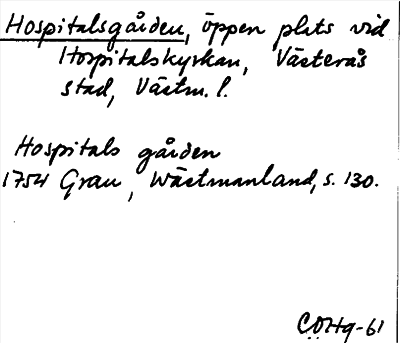 Hospitalsgården, öppen plats vid
Hospitalskyrkan, Västerås
stad, Västm. l.
Hospitals gården
1754 Grau, Wästmanland, s. 130.
CÖHg-61